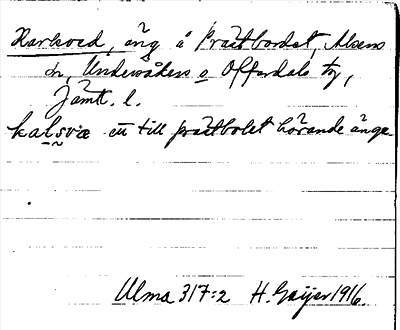 Karlsved, äng å Prästbordet, Alsens
sn, Undersåkers o Offerdals tg,
Jämt. l.
kalsvæ en till prästbolet hörande äng.
Ulma 317:2 H. Geijer 1916.